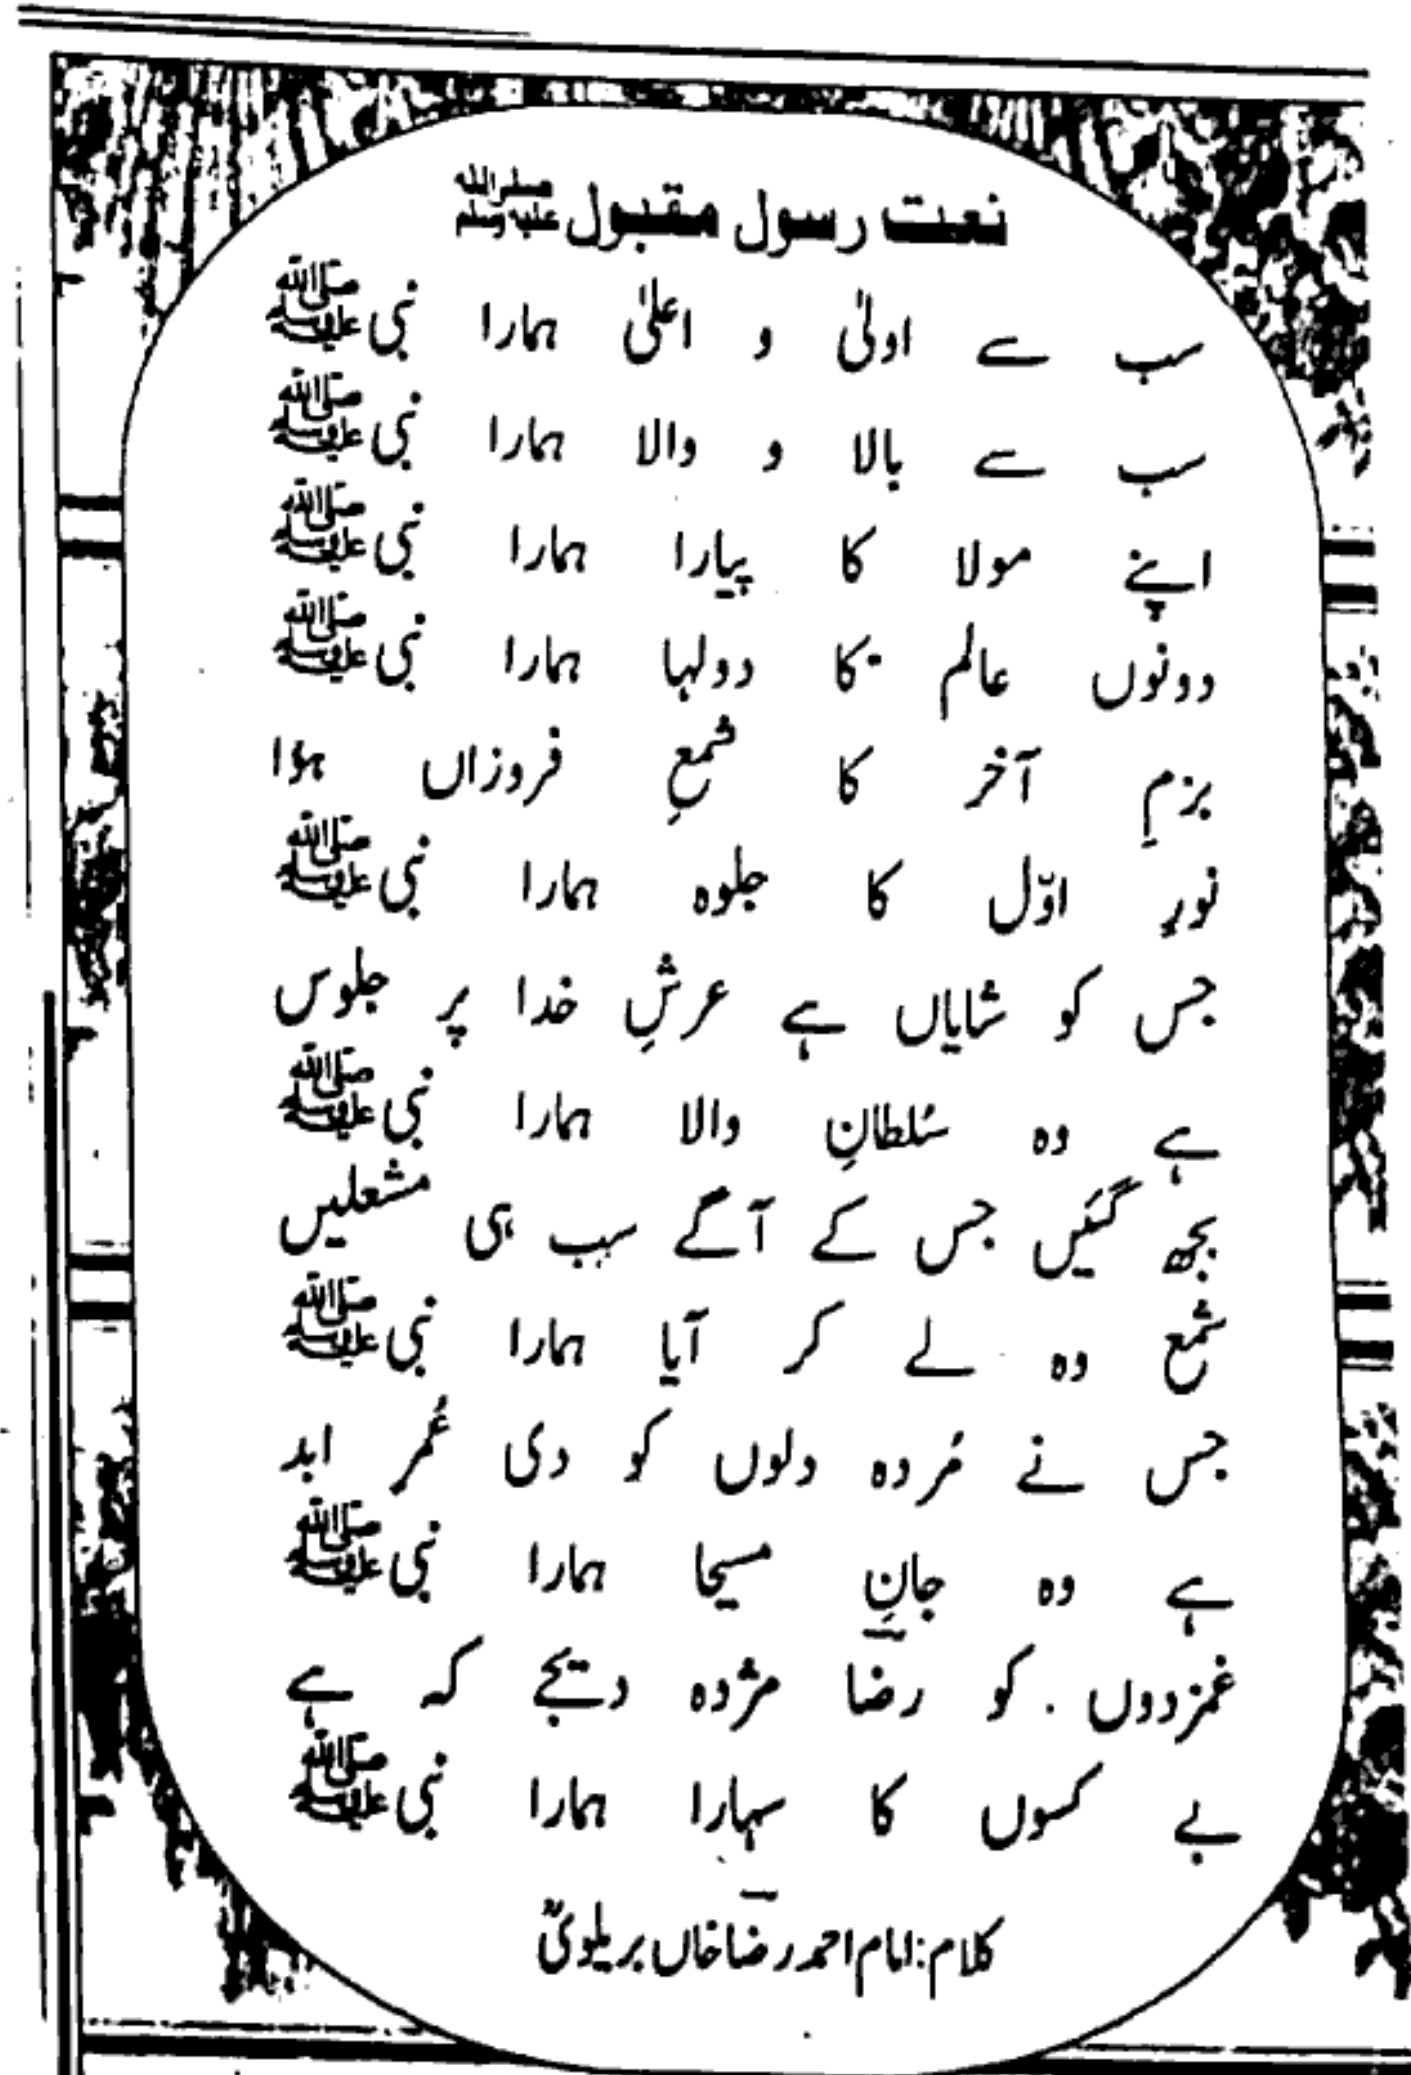 نعت رسول مقبول ﷺ
سب سے اولیٰ و اعلیٰ ہمارا نبی ﷺ
سب سے بالا و والا ہمارا نبی ﷺ
اپنے مولا کا پیارا ہمارا نبی ﷺ
دونوں عالم کا دولہا ہمارا نبی ﷺ
بزمِ آخر کا شمعِ فروزاں ہؤا
نورِ اوّل کا جلوہ ہمارا نبی ﷺ
جس کو شایاں ہے عرشِ خدا پر جلوس
ہے وہ سُلطانِ والا ہمارا نبی ﷺ
بجھ گئیں جس کے آگے سب ہی مشعلیں
شمع وہ لے کر آیا ہمارا نبی ﷺ
جس نے مُردہ دلوں کو دی عُمرِ ابد
ہے وہ جانِ مسیحا ہمارا نبی ﷺ
غمزدوں کو رضا مژدہ دیجے کہ ہے
بے کسوں کا سہارا ہمارا نبی ﷺ
کلام: امام احمد رضا خاں بریلویؒ